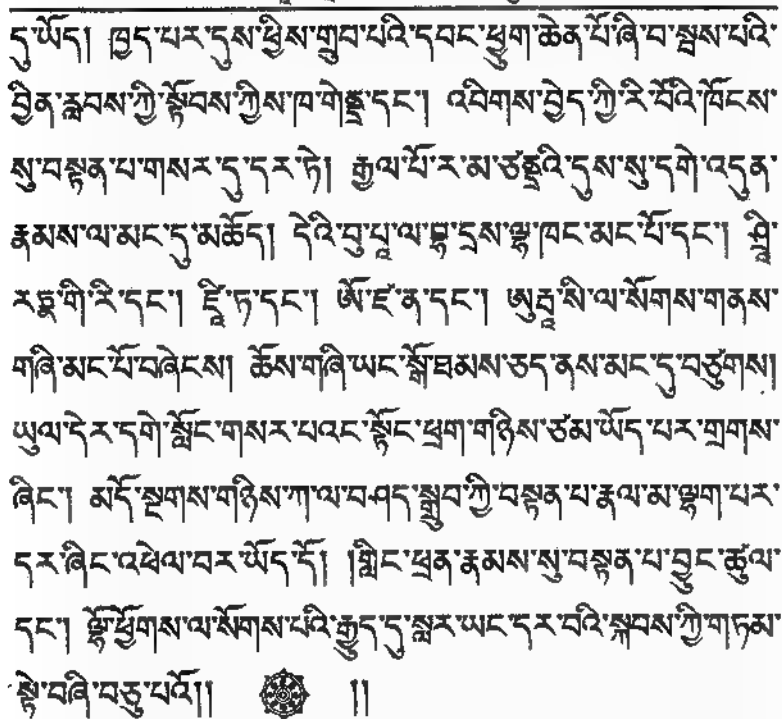 དུ་ཡོད། ཁྱད་པར་དུས་ཕྱིས་གྲུབ་པའི་དབང་ཕྱུག་ཆེན་པོ་ཞི་བ་སྦས་པའི་
བྱིན་རླབས་ཀྱི་སྟོབས་ཀྱིས་ཁ་གེནྡྲ་དང་། འབིགས་བྱེད་ཀྱི་རི་བོའི་ཁོངས་
སུ་བསྟན་པ་གསར་དུ་དར་ཏེ། རྒྱལ་པོ་ར་མ་ཙནྡྲའི་དུས་སུ་དགེ་འདུན་
རྣམས་ལ་མང་དུ་མཆོད། དེའི་བུ་པཱ་ལ་བྷ་དྲས་ལྷ་ཁང་མང་པོ་དང་། ཤྲཱི་
རཏྣ་གི་རི་དང་། ཛཱི་ཏ་དང་། ཨོ་ཛ་ན་དང་། ཨུརྦཱ་སི་ལ་སོགས་གནས་
གཞི་མང་པོ་བཞེངས། ཆོས་གཞི་ཡང་སྒོ་ཐམས་ཅད་ནས་མང་དུ་བཙུགས།
ཡུལ་དེར་དགེ་སློང་གསར་པའང་སྟོང་ཕྲག་གཉིས་ཙམ་ཡོད་པར་གྲགས་
ཞིང་། མདོ་སྔགས་གཉིས་ཀ་ལ་བཤད་སྒྲུབ་ཀྱི་བསྟན་པ་རྣལ་མ་ལྷག་པར་
དར་ཞིང་འཕེལ་བར་ཡོད་དོ། །གླིང་ཕྲན་རྣམས་སུ་བསྟན་པ་བྱུང་ཚུལ་
དང་། ལྷོ་ཕྱོགས་ལ་སོགས་པའི་རྒྱུད་དུ་སླར་ཡང་དར་བའི་སྐབས་ཀྱི་གཏམ་
སྟེ་བཞི་བཅུ་པའོ།། །།